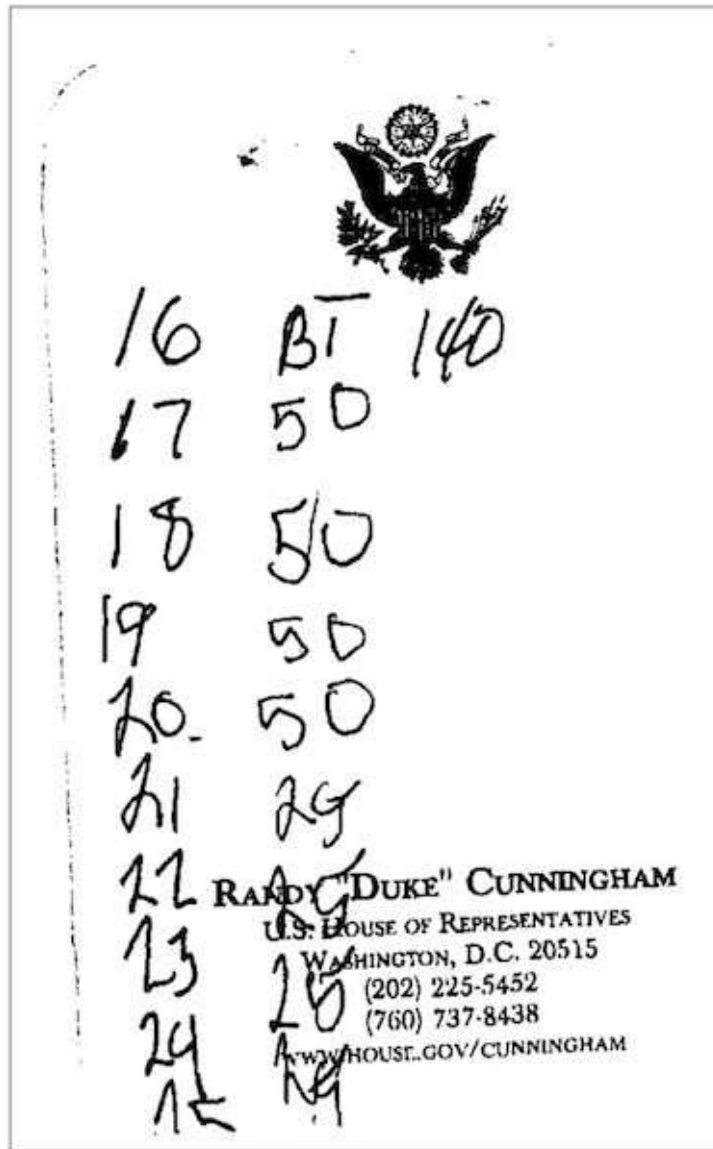 16 BT 140
17 50
18 50
19 50
20. 50
21 25
22 25
RANDY "DUKE" CUNNINGHAM
U.S. HOUSE OF REPRESENTATIVES
WASHINGTON, D.C. 20515
23 25
(202) 225-5452
(760) 737-8438
WWW.HOUSE.GOV/CUNNINGHAM
24 25
25